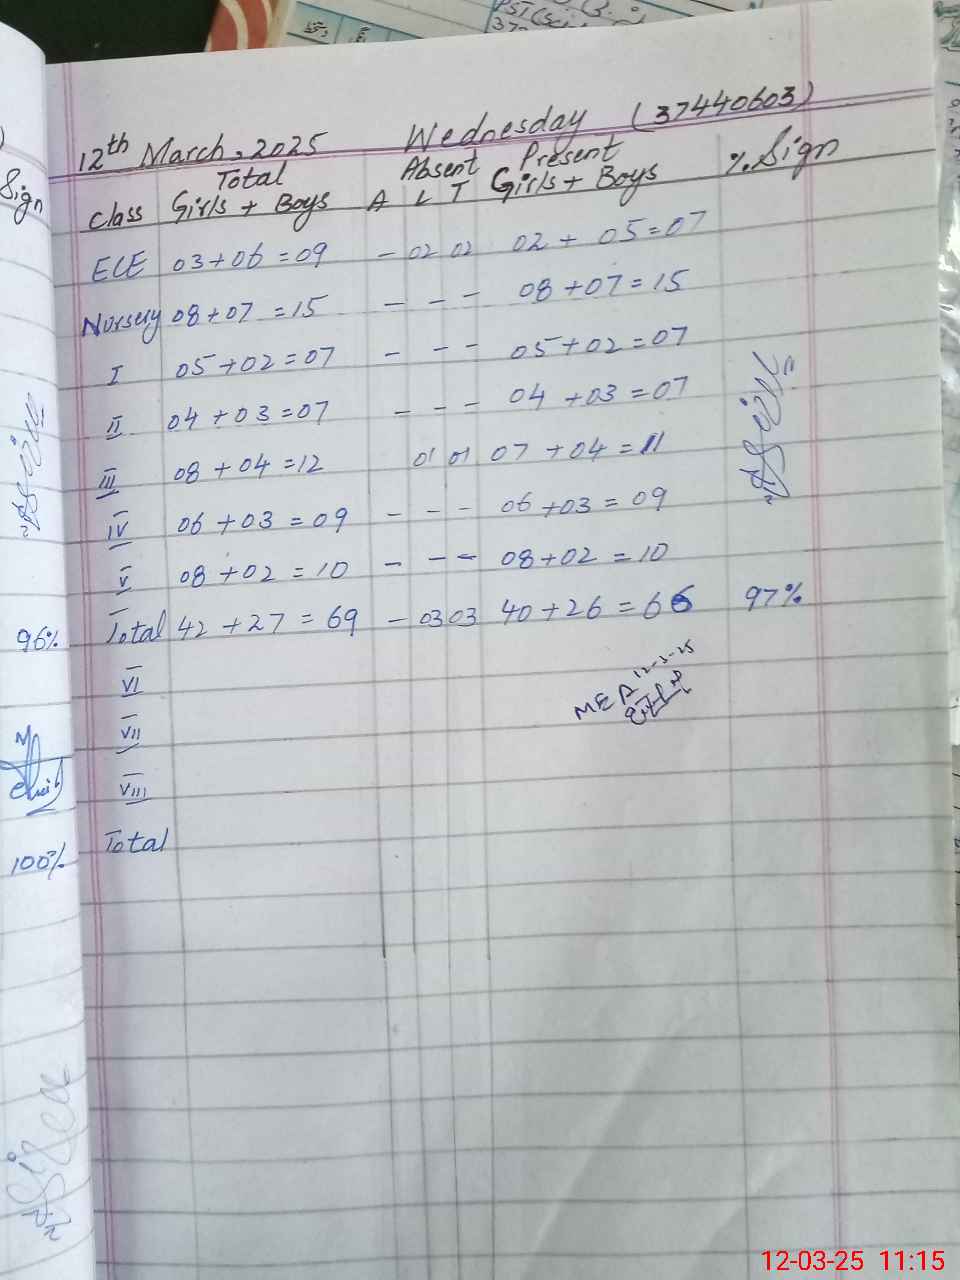 12th March, 2025 Wednesday (37440603)
Total Absent Present %. Sign
Class Girls + Boys A L T Girls + Boys
ECE 03+06=09 - 02 02 02 + 05=07
Nursery 08+07=15 - - - 08+07=15
I 05+02=07 - - - 05+02=07
II 04+03=07 - - - 04+03=07
III 08+04=12 01 01 07+04=11
IV 06+03=09 - - - 06+03=09
V 08+02=10 - - - 08+02=10
Total 42+27=69 - 03 03 40+26=66 97%
VI
MEA 12-3-25
VII
VIII
Total
Sign
96%
100%
12-03-25 11:15